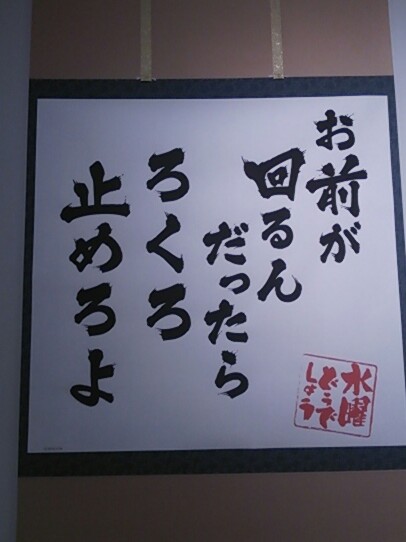 お前が
回るん
だったら
ろくろ
止めろよ
水曜
どうで
しょう